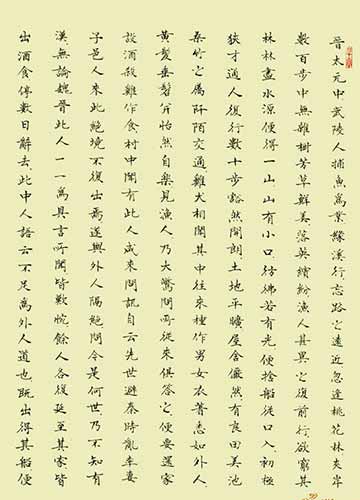 晉太元中武陵人捕魚為業緣溪行忘路之遠近忽逢桃花林夾岸
數百步中無雜樹芳草鮮美落英繽紛漁人甚異之復前行欲窮其
林林盡水源便得一山山有小口彷彿若有光便捨船從口入初極
狹才通人復行數十步豁然開朗土地平曠屋舍儼然有良田美池
桑竹之屬阡陌交通雞犬相聞其中往來種作男女衣著悉如外人
黃髮垂髫并怡然自樂見漁人乃大驚問所從來俱答之便要還家
設酒殺雞作食村中聞有此人咸來問訊自云先世避秦時亂率妻
子邑人來此絕境不復出焉遂與外人隔絕問今是何世乃不知有
漢無論魏晉此人一一為具言所聞皆歎惋餘人各復延至其家皆
出酒食停數日辭去此中人語云不足為外人道也既出得其船便